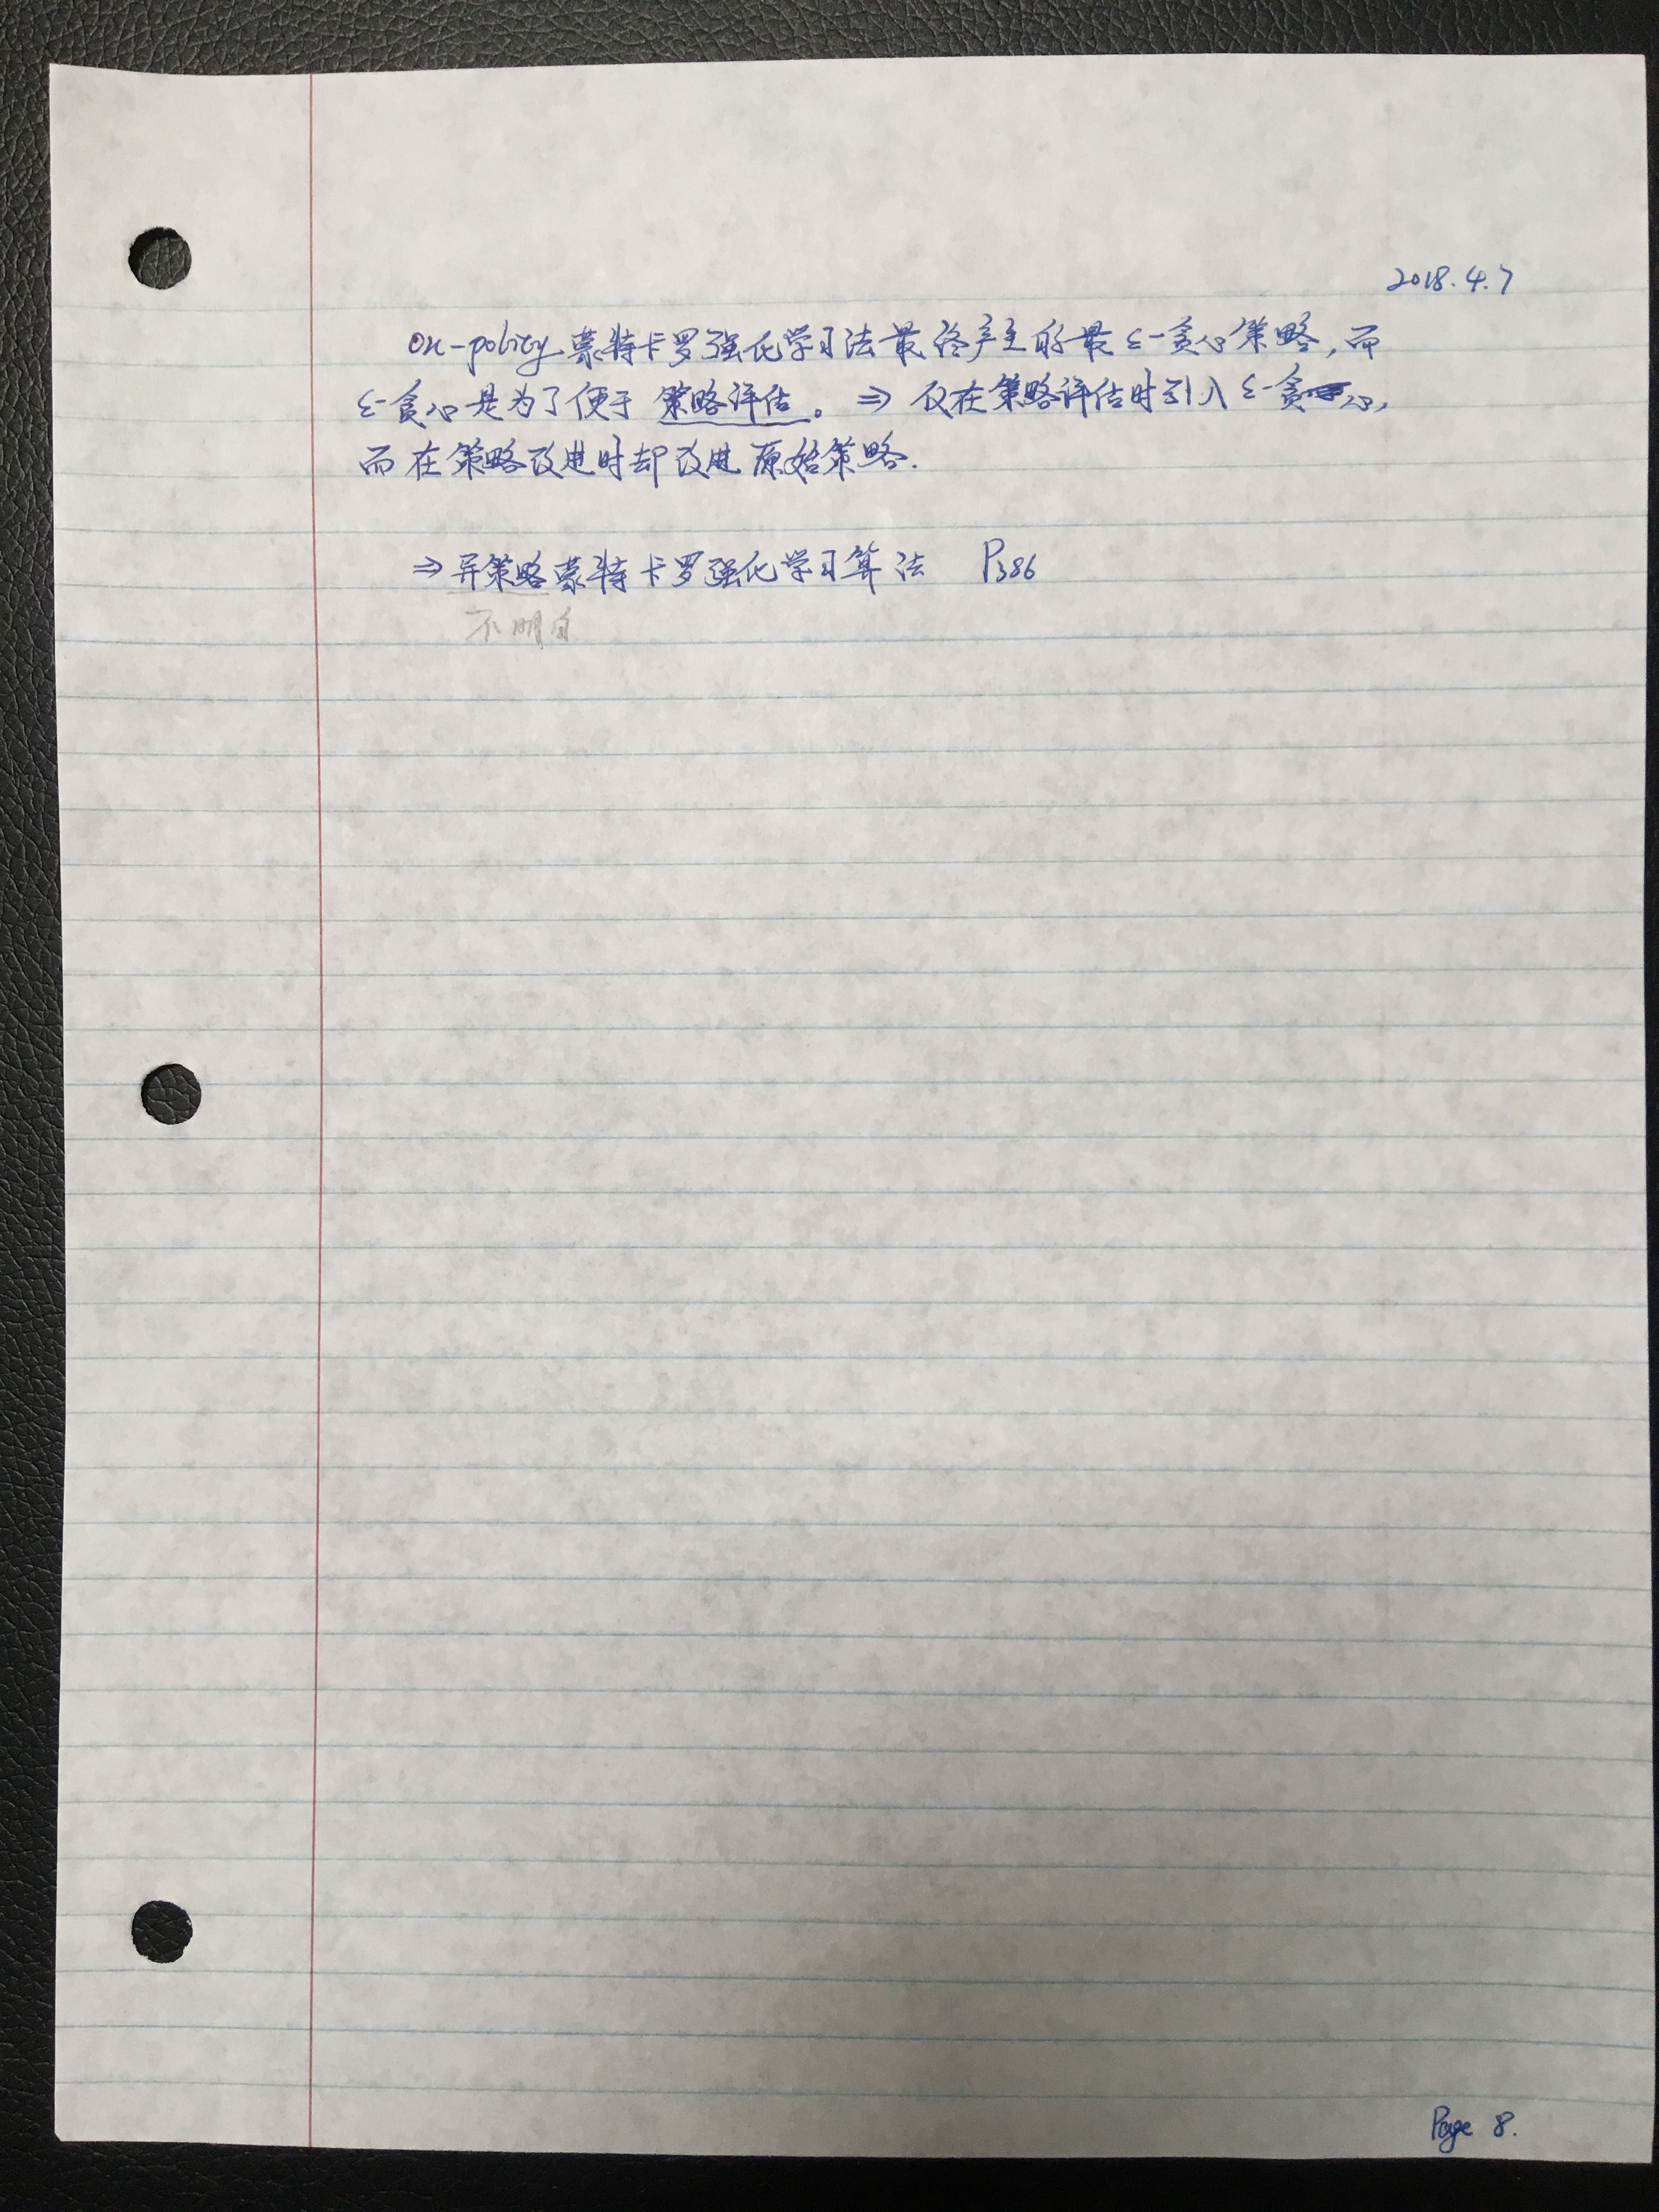 2018.4.7
On-policy 蒙特卡罗强化学习法最终产生的最 ε-贪心策略，而
ε-贪心是为了便于 策略评估。 ⇒ 仅在策略评估时引入 ε-贪心，
而在策略改进时却改进原始策略.
⇒ 异策略蒙特卡罗强化学习算法 P386
不明白
Page 8.